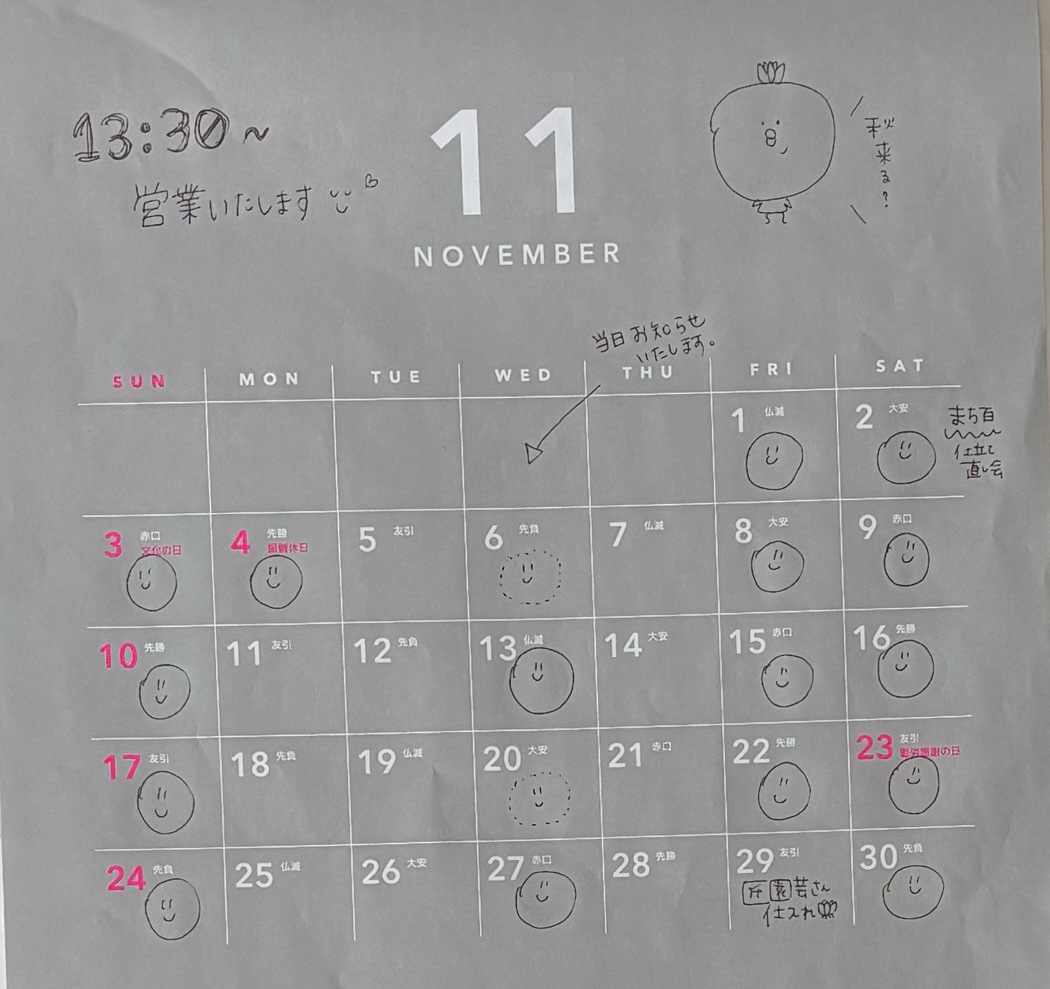 13:30~
営業いたします
11
NOVEMBER
秋来る?
当日お知らせ
いたします。
SUN MON TUE WED THU FRI SAT
1 仏滅 2 大安
まち百
仕立て
直し会
3 赤口 文化の日 4 先勝 振替休日 5 友引 6 先負 7 仏滅 8 大安 9 赤口
10 先勝 11 友引 12 先負 13 仏滅 14 大安 15 赤口 16 先勝
17 友引 18 先負 19 仏滅 20 大安 21 赤口 22 先勝 23 友引 勤労感謝の日
24 先負 25 仏滅 26 大安 27 赤口 28 先勝 29 友引 30 先負
園芸さん
仕入れ